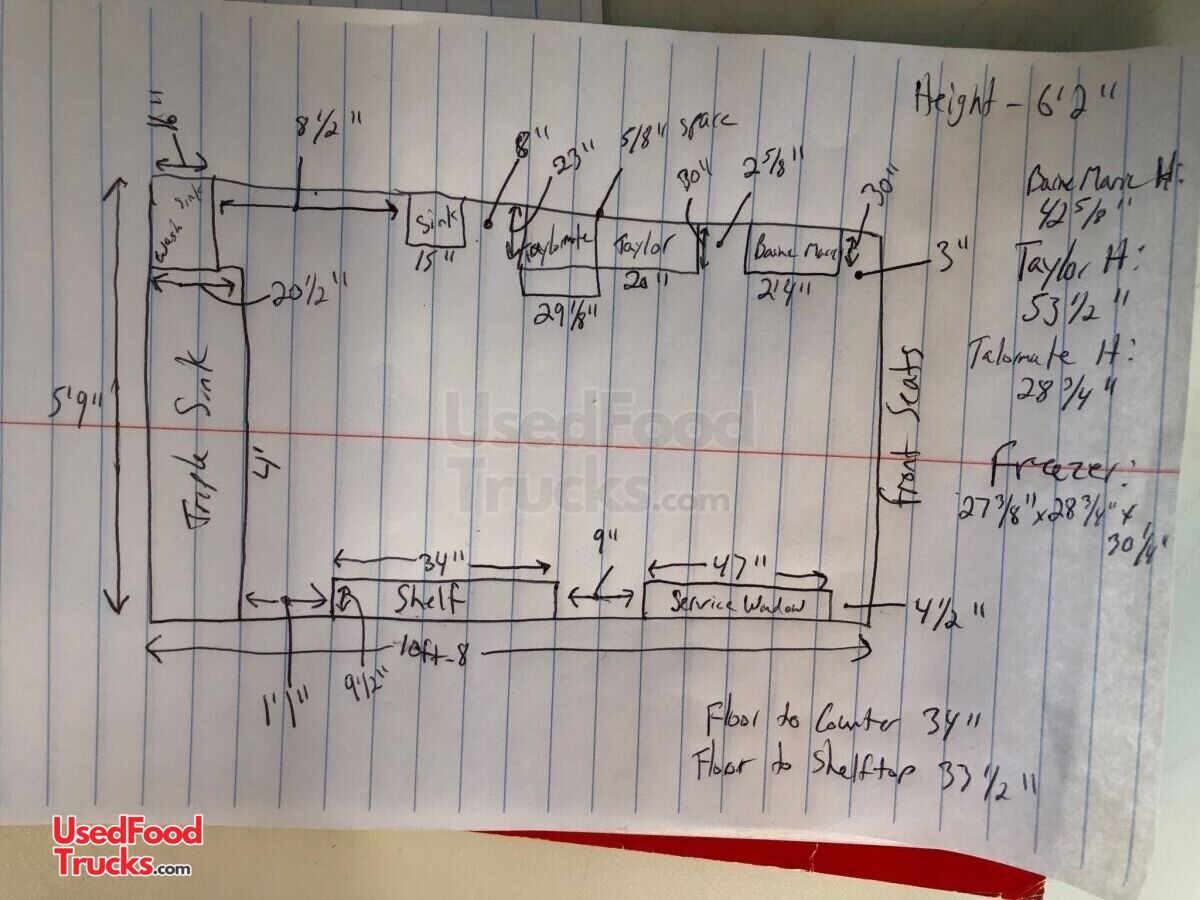 Height - 6'2"
16"
8 1/2"
8"
23"
5/8" space
30"
2 5/8"
30"
3"
Wash Sink
Sink
15"
Taylomate
Taylor
29 1/8"
20"
Baine Marie
24"
Baine Marie H:
42 5/8"
Taylor H:
53 1/2"
Talomate H:
28 3/4"
20 1/2"
5'9"
Triple Sink
4'
Front Seats
Freezer:
27 3/8" x 28 3/4" x
30 1/4"
UsedFood
Trucks.com
34"
Shelf
9"
47"
Service Window
4 1/2"
10ft-8
1'1"
9 1/2"
Floor to Counter 34"
Floor to Shelftop 33 1/2"
UsedFood
Trucks.com